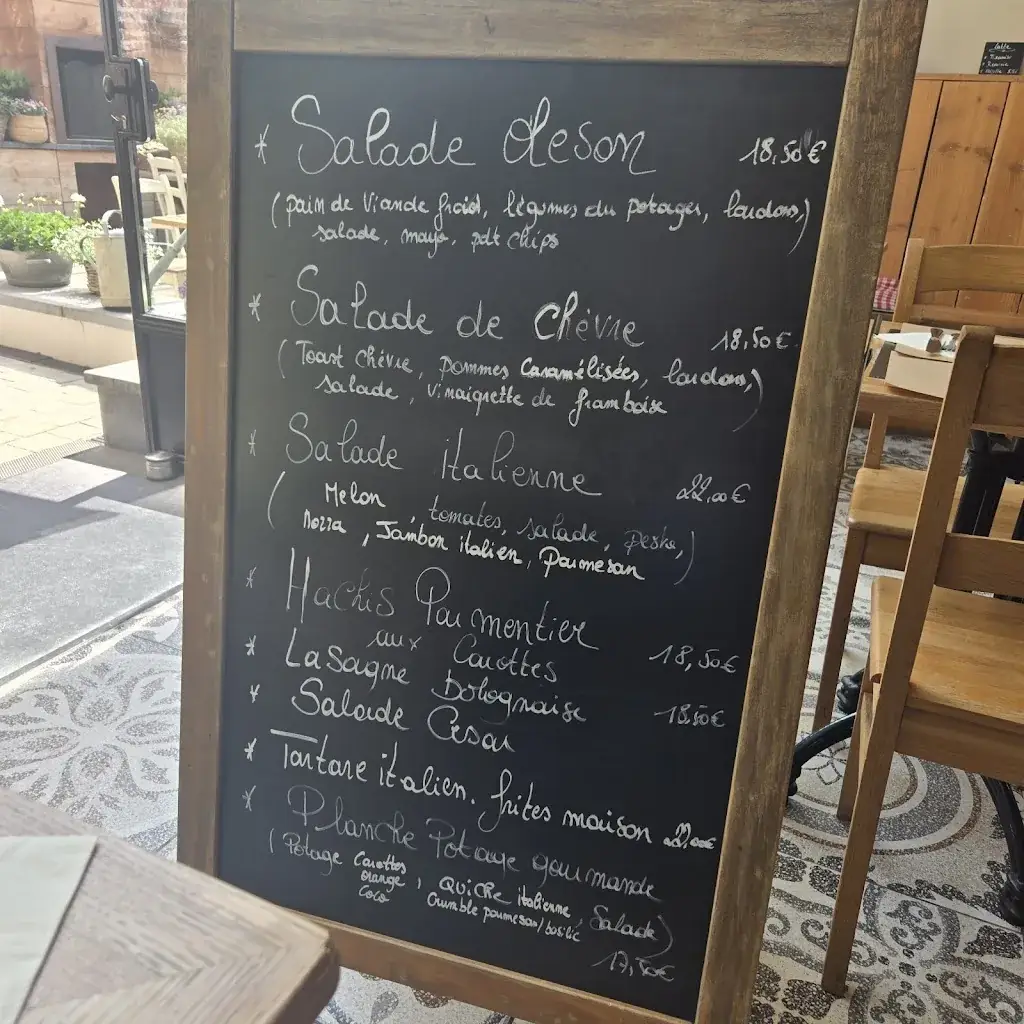 * Salade deson 18,50€
(pain de viande froid, légumes du potager, lardons,
salade, mayo, pdt chips)
* Salade de Chèvre 18,50€
(Toast chèvre, pommes Caramélisées, lardons,
salade, vinaigrette de framboise)
* Salade italienne 22,00€
(Melon tomates, salade, pesto,
mozza, Jambon italien, Parmesan)
* Hachis Parmentier
aux Carottes 18,50€
* Lasagne bolognaise 18.50€
* Salade César
* Tartare italien. frites maison 22,00€
* Planche Potage gourmande
(Potage Carottes
orange
Coco, Quiche italienne, Salade)
Crumble parmesan/basilic
17,50€